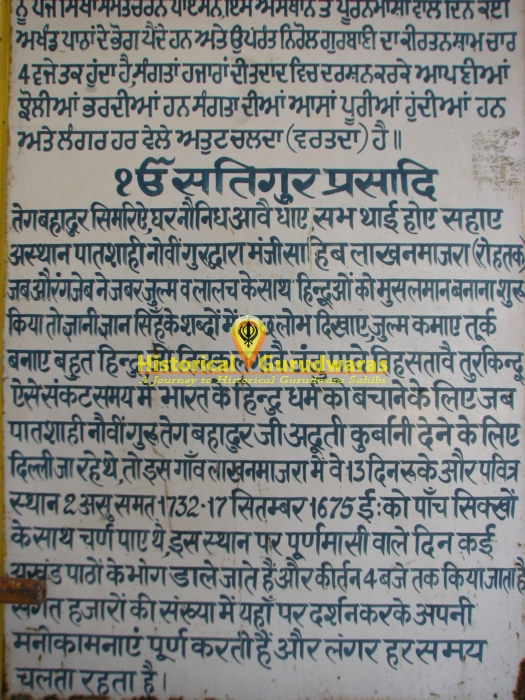 ਨੂੰ
ਅਖੰਡ ਪਾਠਾਂ ਦੇ ਭੋਗ ਪੈਂਦੇ ਹਨ ਅਤੇ ਉਪਰੰਤ ਨਿਰੋਲ ਗੁਰਬਾਣੀ ਦਾ ਕੀਰਤਨ ਸ਼ਾਮ ਚਾਰ
4 ਵਜੇ ਤਕ ਹੁੰਦਾ ਹੈ, ਸੰਗਤਾਂ ਹਜਾਰਾਂ ਦੀ ਤਦਾਦ ਵਿਚ ਦਰਸ਼ਨ ਕਰਕੇ ਆਪਣੀਆਂ
ਝੋਲੀਆਂ ਭਰਦੀਆਂ ਹਨ ਸੰਗਤਾ ਦੀਆਂ ਆਸਾਂ ਪੂਰੀਆਂ ਹੁੰਦੀਆਂ ਹਨ
ਅਤੇ ਲੰਗਰ ਹਰ ਵੇਲੇ ਅਤੁਟ ਚਲਦਾ (ਵਰਤਦਾ) ਹੈ॥
੧ੳ सतिगुर प्रसादि
तेग बहादूर सिमरिऐ, घर नौ निध आवै धाए सभ थाई होए सहाए
अस्थान पातशाही नोवीं गुरुद्वारा मंजी साहिब लाखन माजरा (रोहतक
जब औरंगजेब ने जबर जुल्म व लालच के साथ हिन्दूओं को मुसलमान बनाना शुरू
किया तो ज्ञानी ज्ञान सिहँ के शब्दों लोभ दिखाए जुल्म कमाए तूर्क
बनाए बहुत हिन्दु
Historical Gurudwaras
A Journey to Historical Gurudwara Sahibs
ऐसे संकट समय में भारत के हिन्दु धर्म को बचाने के लिए जब
पातशाही नौवीं गुरु तेग बहादुर जी अदूती कुर्बानी देने के लिए
दिल्ली जा रहे थे, तो इस गाँव लाखन माजरा में वे 13 दिन रुके और पवित्र
स्थान 2 असु समत 1732-17 सितम्बर 1675 ई: को पाँच सिक्खों
के साथ चर्ण पाए थे, इस स्थान पर पूर्णमासी वाले दिन कई
अखंड पाठों के भोग डाले जाते हैं और कीर्तन 4 बजे तक किया जाता है
संगत हजारों की संख्या में यहाँ पर दर्शन करके अपनी
मनोकामनाएं पूर्ण करती हैं और लंगर हर समय
चलता रहता है।